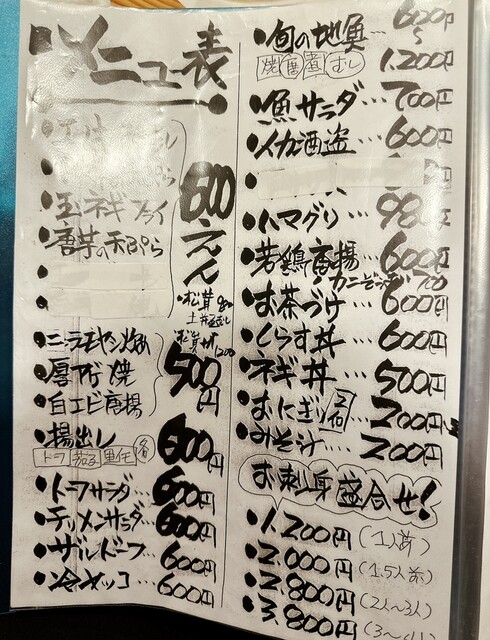 メニュー表
玉ネギフライ
唐芋の天ぷら
600えん
松茸
土瓶むし
ニラモヤシ炒め
厚アゲ焼
白エビ唐揚
500円
揚出し
各
600円
トーフサラダ…600円
チリメンサラダ…600円
ザルドーフ…600円
冷ヤッコ…600円
旬の地魚…600円
〜
1,200円
焼 煮 むし
魚サラダ…700円
イカ酒盗…600円
ハマグリ…980
若鶏唐揚…600円
カニぞうすい 700
お茶づけ…600円
しらす丼…600円
ネギ丼…500円
おにぎり 2ヶ 200円
みそ汁…200円
お刺身盛合せ!
1.200円(1人前)
2.000円(1.5人前)
2.800円(2人~3人)
3.800円